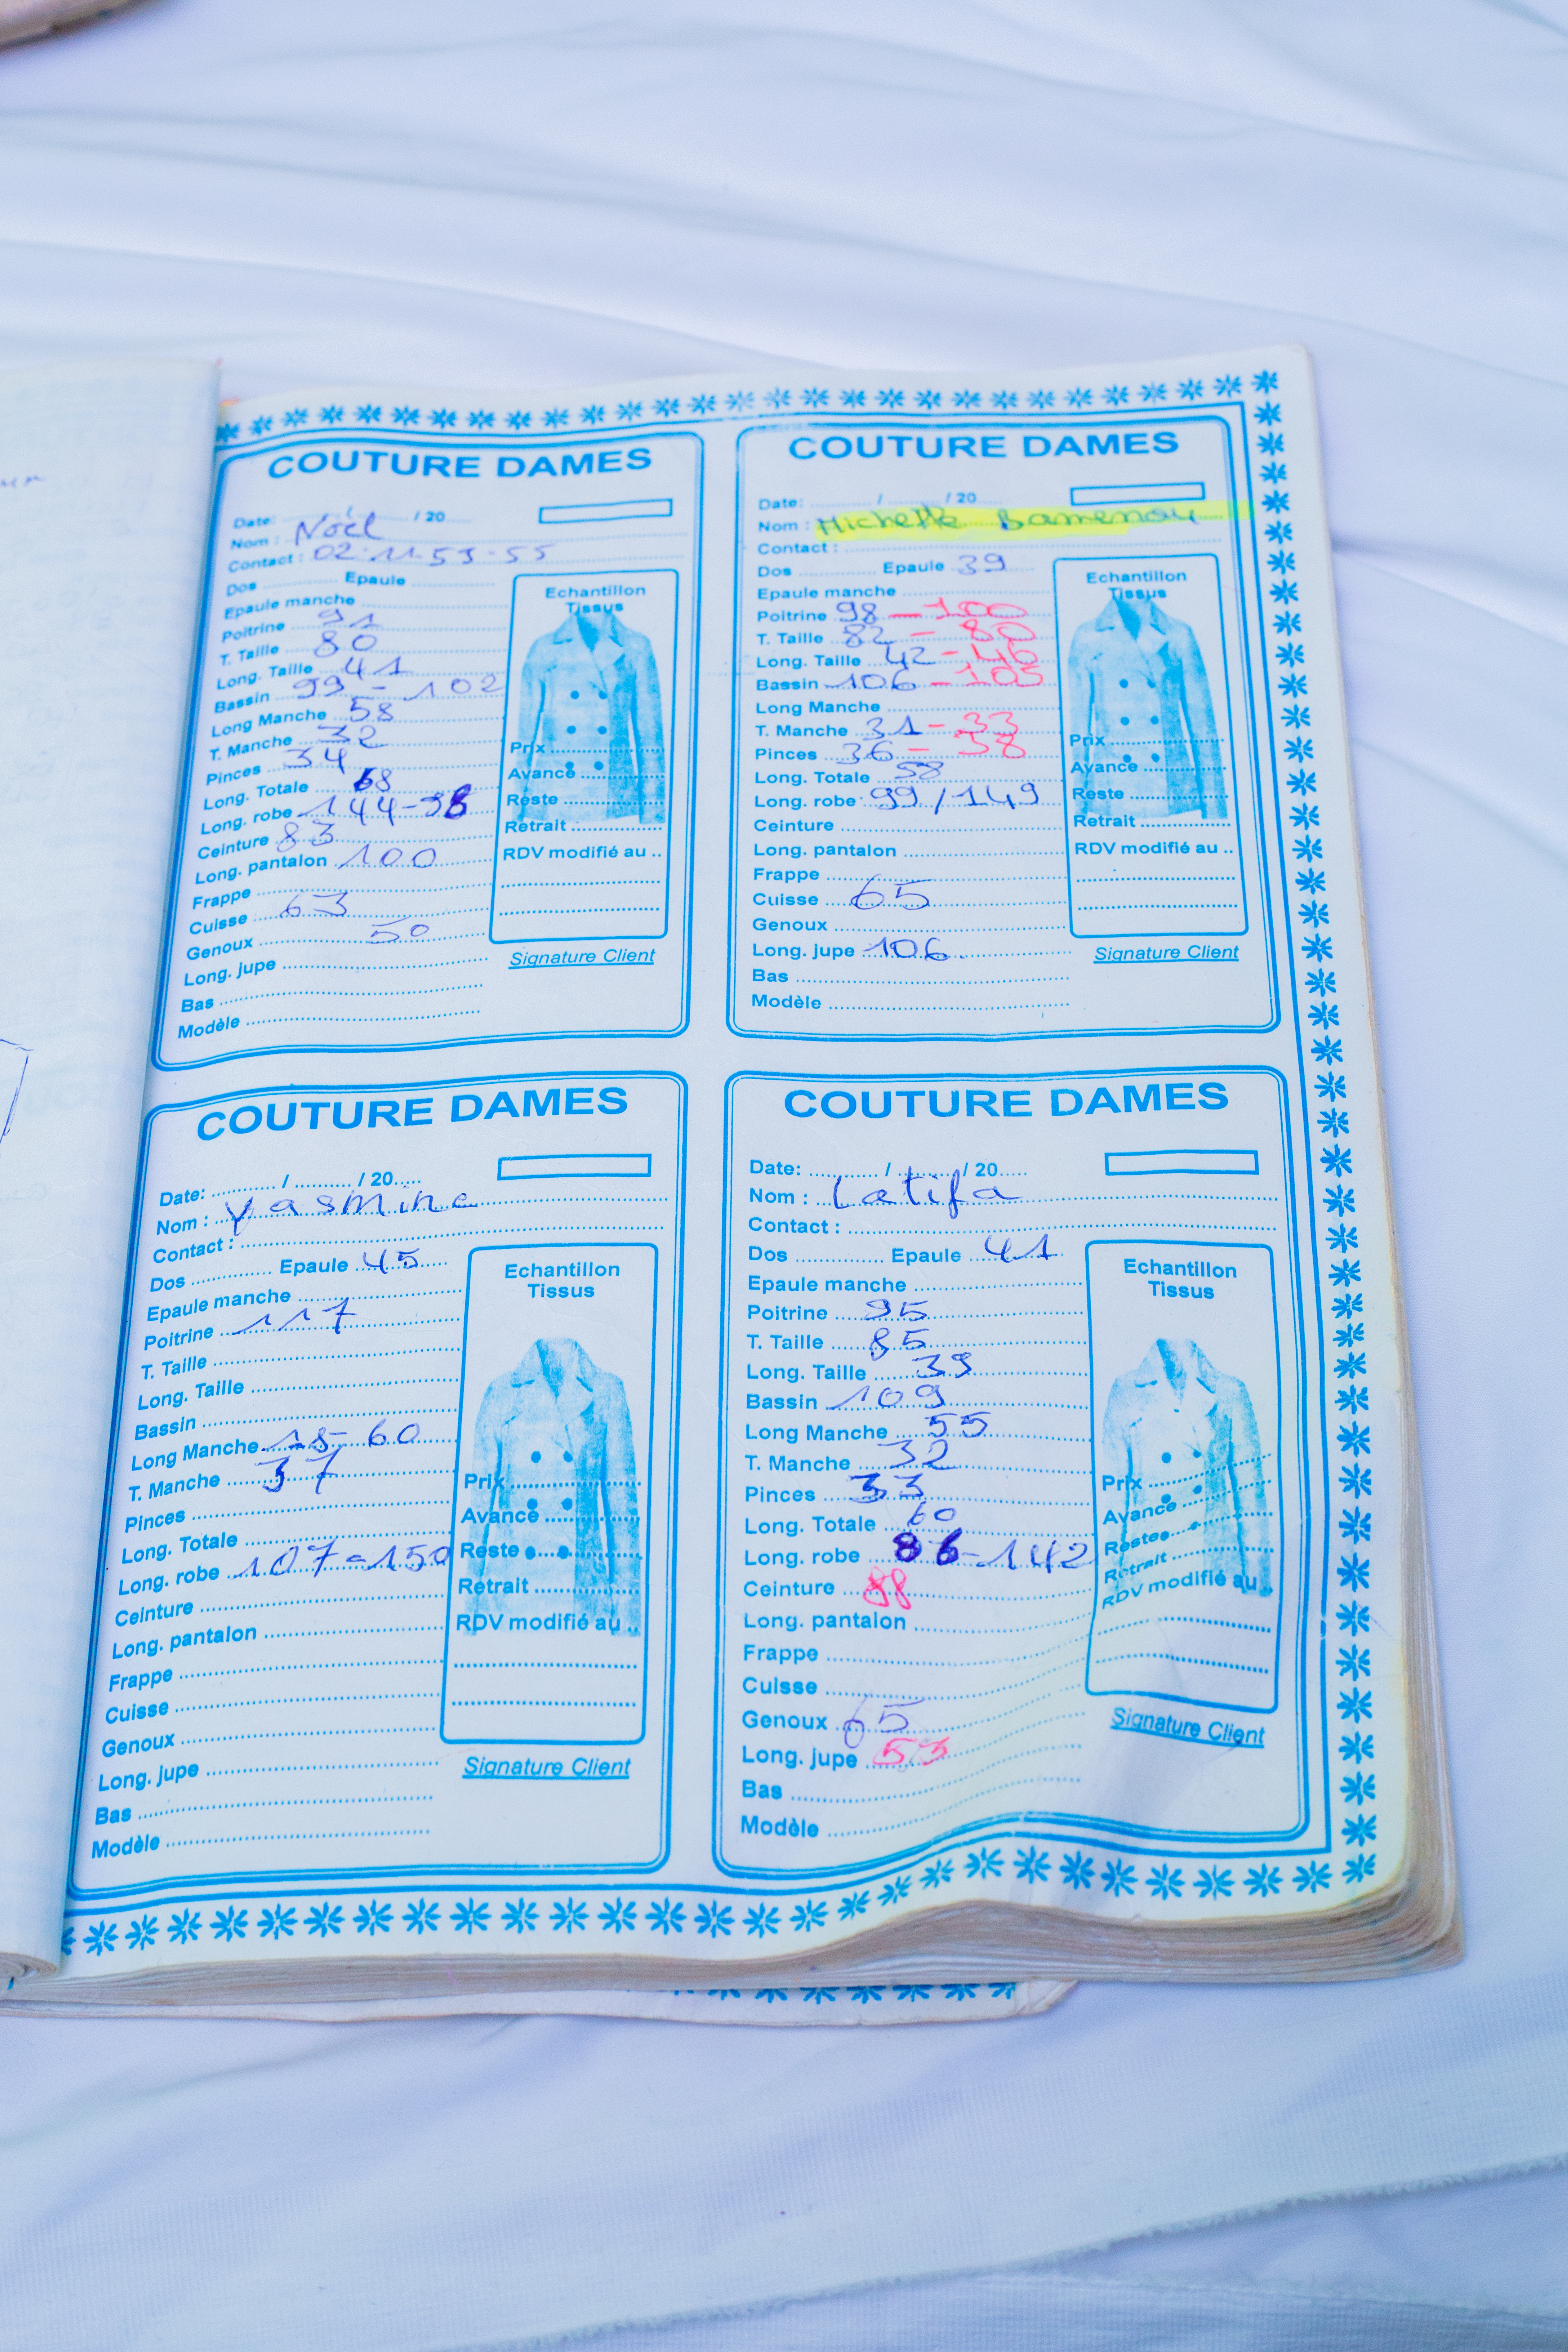 COUTURE DAMES
Date: ........ / ........ / 20.....
Nom : Noël
Contact : 02-11-53-55
Dos ........ Epaule ........
Epaule manche ........
Poitrine 91
T. Taille 80
Long. Taille 41
Bassin 99 - 102
Long Manche 58
T. Manche 32
Pinces 34
Long. Totale 68
Long. robe 144-98
Ceinture 83
Long. pantalon 100
Frappe ........
Cuisse 63
Genoux 50
Long. jupe ........
Bas ........
Modèle ........
Echantillon
Tissus
Prix ........
Avance ........
Reste ........
Retrait ........
RDV modifié au ..
Signature Client
COUTURE DAMES
Date: ........ / ........ / 20.....
Nom : Michelle Bamenou
Contact : ........
Dos ........ Epaule 39
Epaule manche ........
Poitrine 98 - 100
T. Taille 82 - 80
Long. Taille 42 - 40
Bassin 106 - 105
Long Manche ........
T. Manche 31 - 33
Pinces 36 - 38
Long. Totale 58
Long. robe 99 / 149
Ceinture ........
Long. pantalon ........
Frappe ........
Cuisse 65
Genoux ........
Long. jupe 106
Bas ........
Modèle ........
Echantillon
Tissus
Prix ........
Avance ........
Reste ........
Retrait ........
RDV modifié au ..
Signature Client
COUTURE DAMES
Date: ........ / ........ / 20.....
Nom : Yasmine
Contact : ........
Dos ........ Epaule 45
Epaule manche ........
Poitrine 117
T. Taille ........
Long. Taille ........
Bassin ........
Long Manche 18- 60
T. Manche 37
Pinces ........
Long. Totale ........
Long. robe 107=150
Ceinture ........
Long. pantalon ........
Frappe ........
Cuisse ........
Genoux ........
Long. jupe ........
Bas ........
Modèle ........
Echantillon
Tissus
Prix ........
Avance ........
Reste ........
Retrait ........
RDV modifié au ..
Signature Client
COUTURE DAMES
Date: ........ / ........ / 20.....
Nom : Latifa
Contact : ........
Dos ........ Epaule 41
Epaule manche ........
Poitrine 95
T. Taille 85
Long. Taille 39
Bassin 109
Long Manche 55
T. Manche 32
Pinces 33
Long. Totale 60
Long. robe 86-142
Ceinture 88
Long. pantalon ........
Frappe ........
Cuisse ........
Genoux 65
Long. jupe 53
Bas ........
Modèle ........
Echantillon
Tissus
Prix ........
Avance ........
Restee ........
Retrait ........
RDV modifié au ..
Signature Client